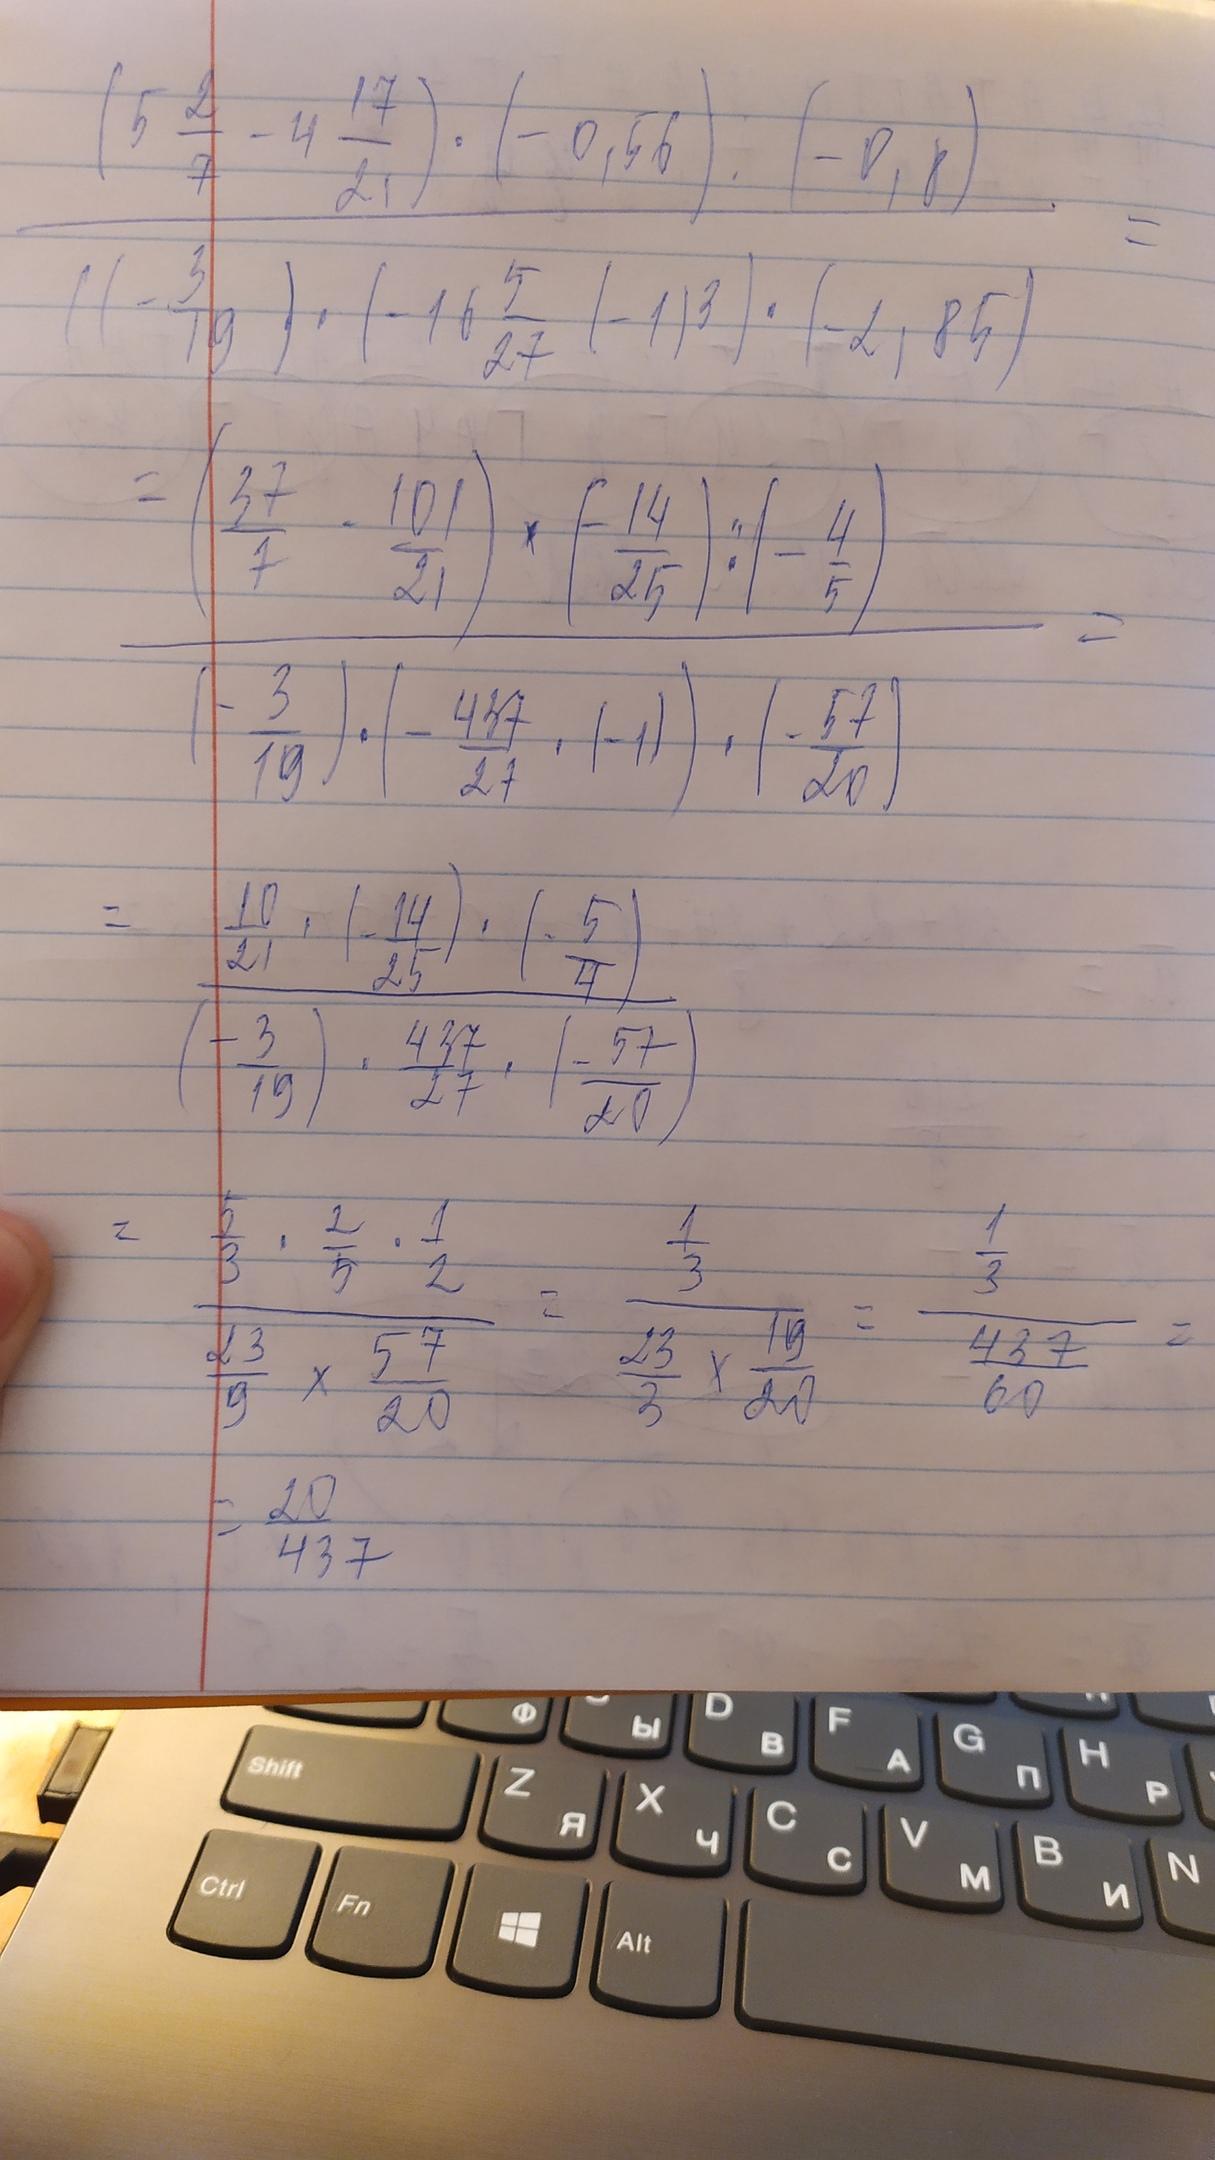 (5 2/7 - 4 17/21) · (-0,56) : (-0,8)
=
((-3/19) · (-16 5/27 (-1)3) · (-2,85)
= (37/7 - 101/21) × (-14/25) : (-4/5)
=
(-3/19) · (-437/27 · (-1)) · (-57/20)
= 10/21 · (-14/25) · (-5/4)
(-3/19) · 437/27 · (-57/20)
= 5/3 · 2/5 · 1/2 = 1/3 = 1/3 =
23/9 × 57/20 23/3 × 19/20 437/60
= 20/437
Ф Ы D В F А G П H Р
Shift Z Я X Ч C С V М B И N
Ctrl Fn Alt